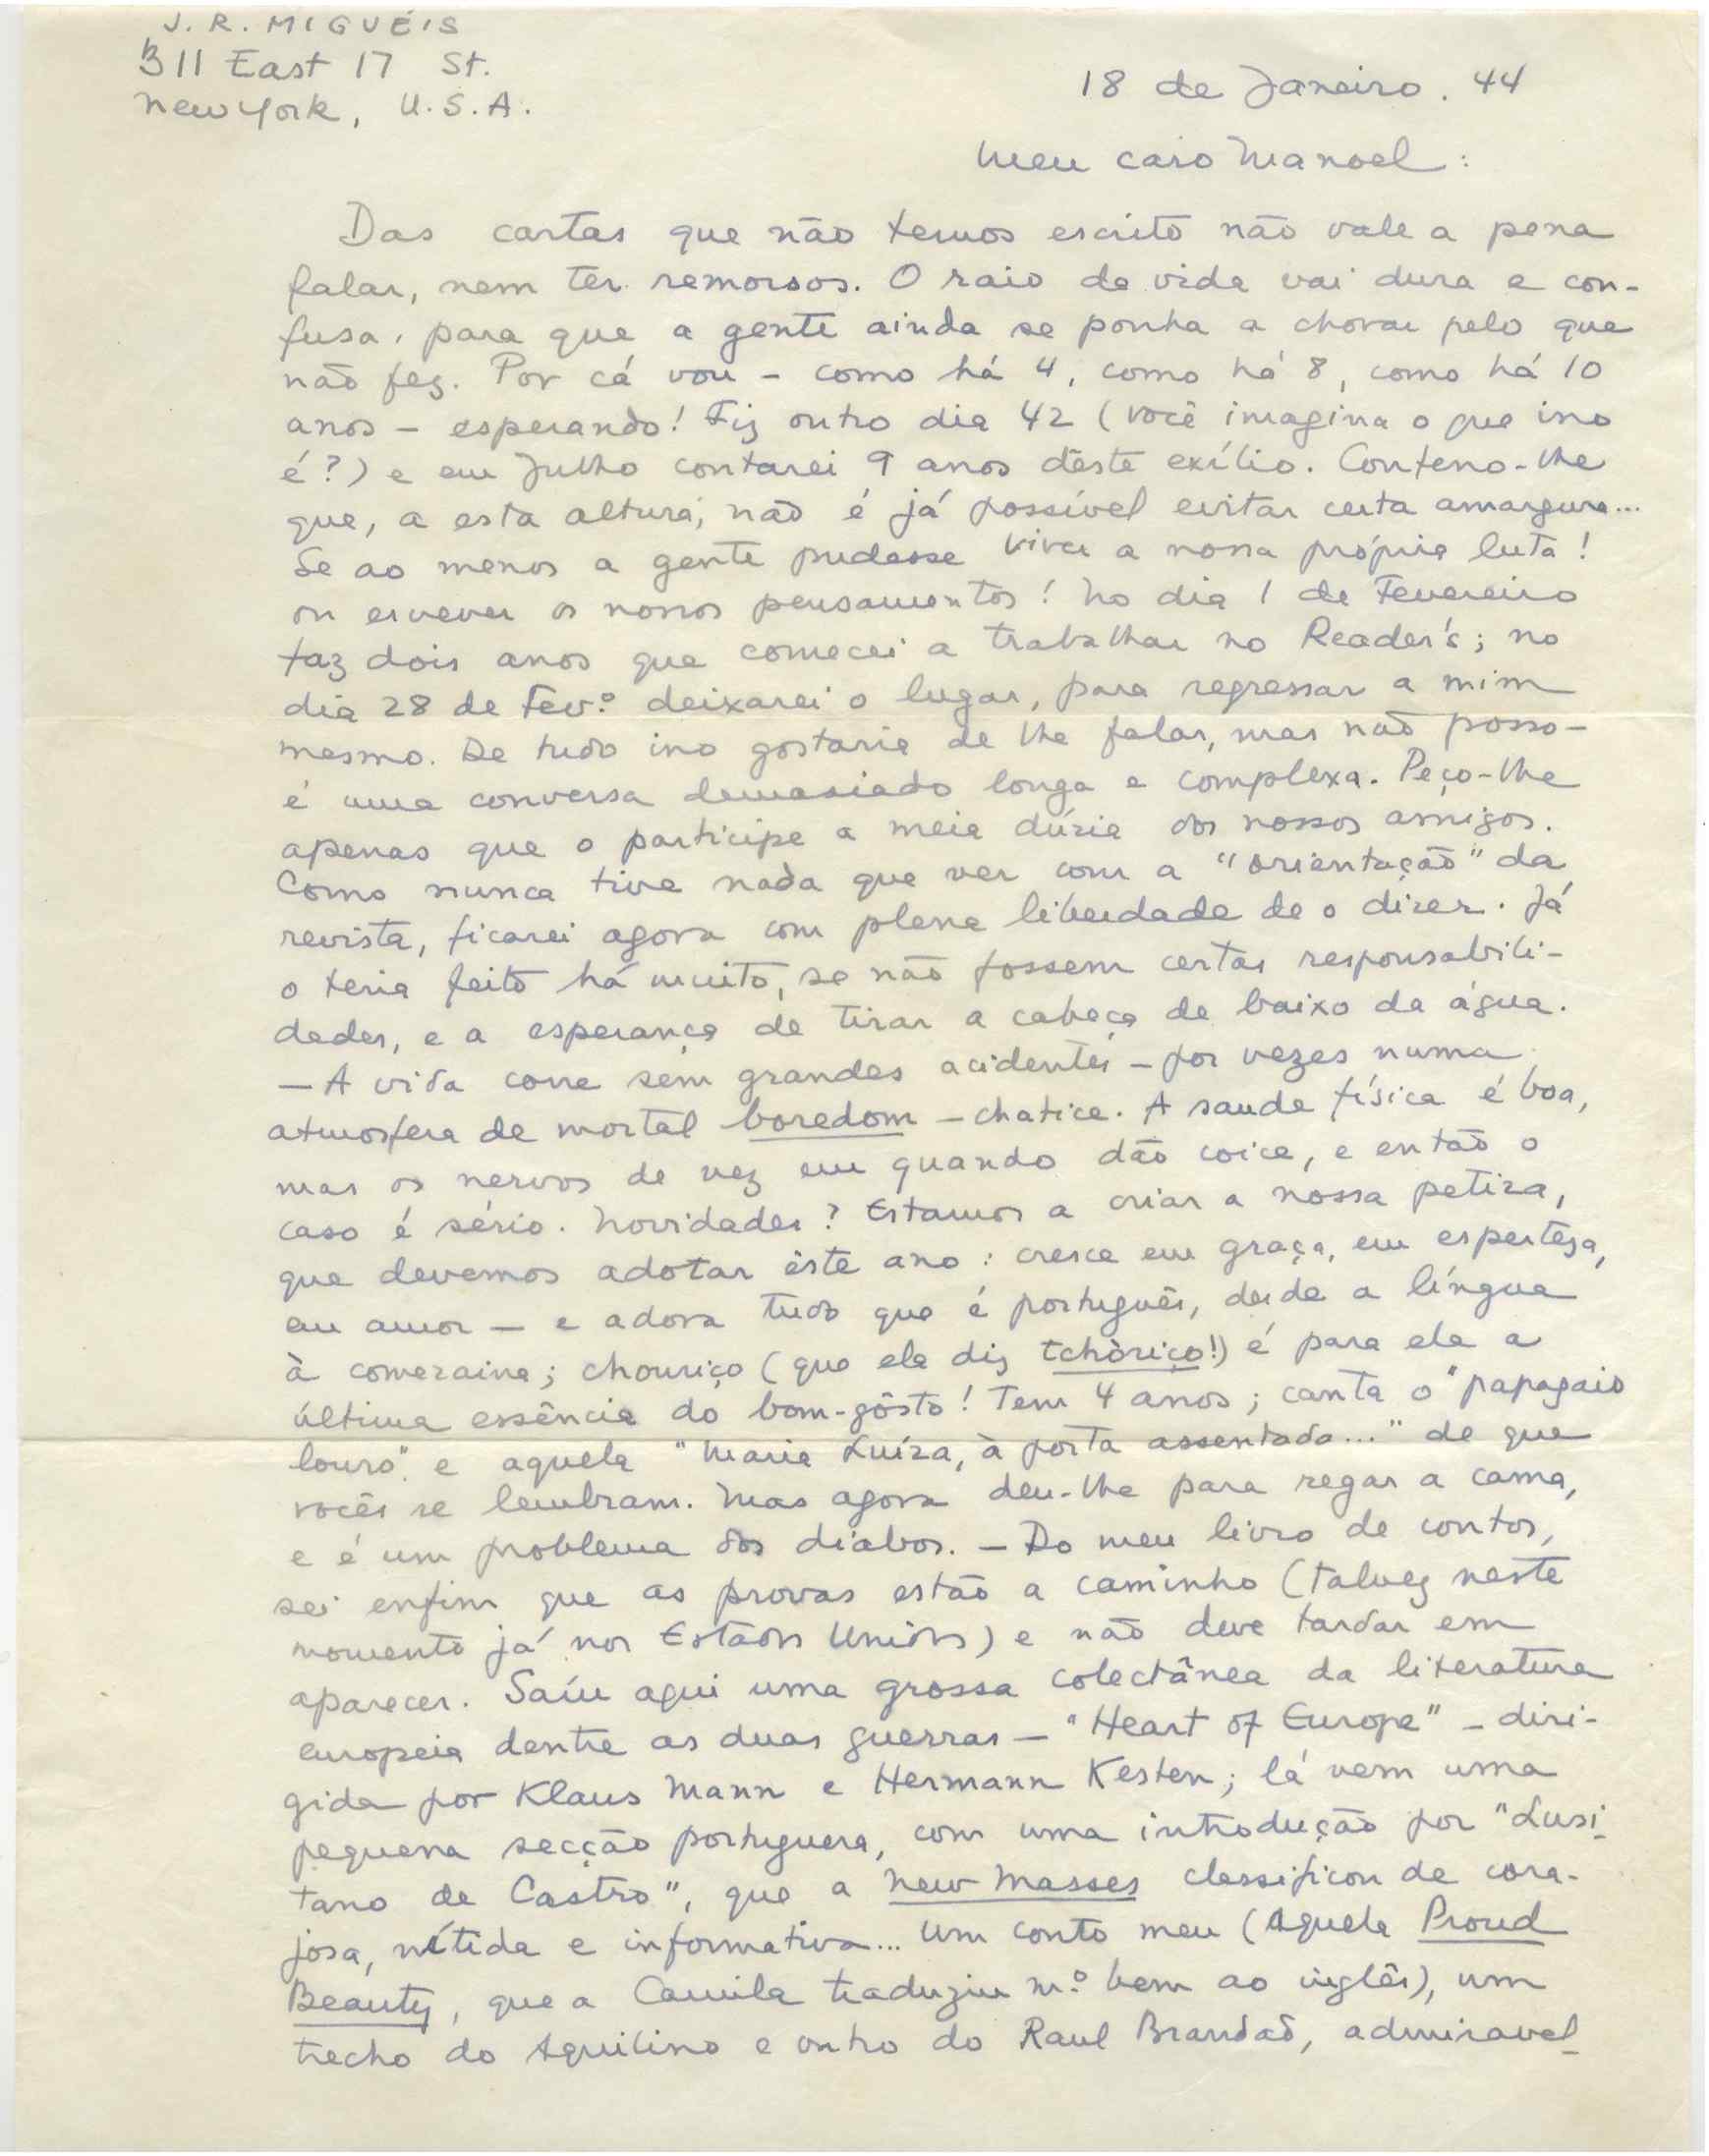 J. R. MIGUÉIS
311 East 17 St.
New York, U.S.A.
18 de Janeiro. 44
Meu caro Manoel:
Das cartas que não temos escrito não vale a pena
falar, nem ter remorsos. O raio da vida vai dura e con-
fusa, para que a gente ainda se ponha a chorar pelo que
não fez. Por cá vou - como há 4, como há 8, como há 10
anos - esperando! Fiz outro dia 42 (você imagina o que isso
é?) e em Julho contarei 9 anos dêste exílio. Confesso-lhe
que, a esta altura, não é já possível evitar certa amargura...
Se ao menos a gente pudesse viver a nossa própria luta!
ou escrever os nossos pensamentos! No dia 1 de Fevereiro
faz dois anos que comecei a trabalhar no Reader's; no
dia 28 de Fev.º deixarei o lugar, para regressar a mim
mesmo. De tudo isso gostaria de lhe falar, mas não posso -
é uma conversa demasiado longa e complexa. Peço-lhe
apenas que o participe a meia dúzia dos nossos amigos.
Como nunca tive nada que ver com a "orientação" da
revista, ficarei agora com plena liberdade de o dizer. Já
o teria feito há muito, se não fossem certas responsabili-
dades, e a esperança de tirar a cabeça de baixo da água.
- A vida corre sem grandes acidentes - por vezes numa
atmosfera de mortal boredom - chatice. A saude física é boa,
mas os nervos de vez em quando dão coice, e então o
caso é sério. Novidades? Estamos a criar a nossa petiza,
que devemos adotar êste ano: cresce em graça, em esperteza,
em amor - e adora tudo que é português, desde a língua
à comezaina; chouriço (que ela diz tchòriço!) é para ela a
última essência do bom-gôsto! Tem 4 anos; canta o "papagaio
louro" e aquela "Maria Luíza, à porta assentada..." de que
vocês se lembram. Mas agora deu-lhe para regar a cama,
e é um problema dos diabos. - Do meu livro de contos,
sei enfim que as provas estão a caminho (talvez neste
momento já nos Estados Unidos) e não deve tardar em
aparecer. Saíu aqui uma grossa colectânea da literatura
europeia dentre as duas guerras - "Heart of Europe" - diri-
gida por Klaus Mann e Hermann Kesten; lá vem uma
pequena secção portuguesa, com uma introdução por "Lusi-
tano de Castro", que a New Masses classificou de cora-
josa, nítida e informativa... Um conto meu (aquela Proud
Beauty, que a Camila traduziu m.º bem ao inglês), um
trecho do Aquilino e outro do Raul Brandão, admiravel-